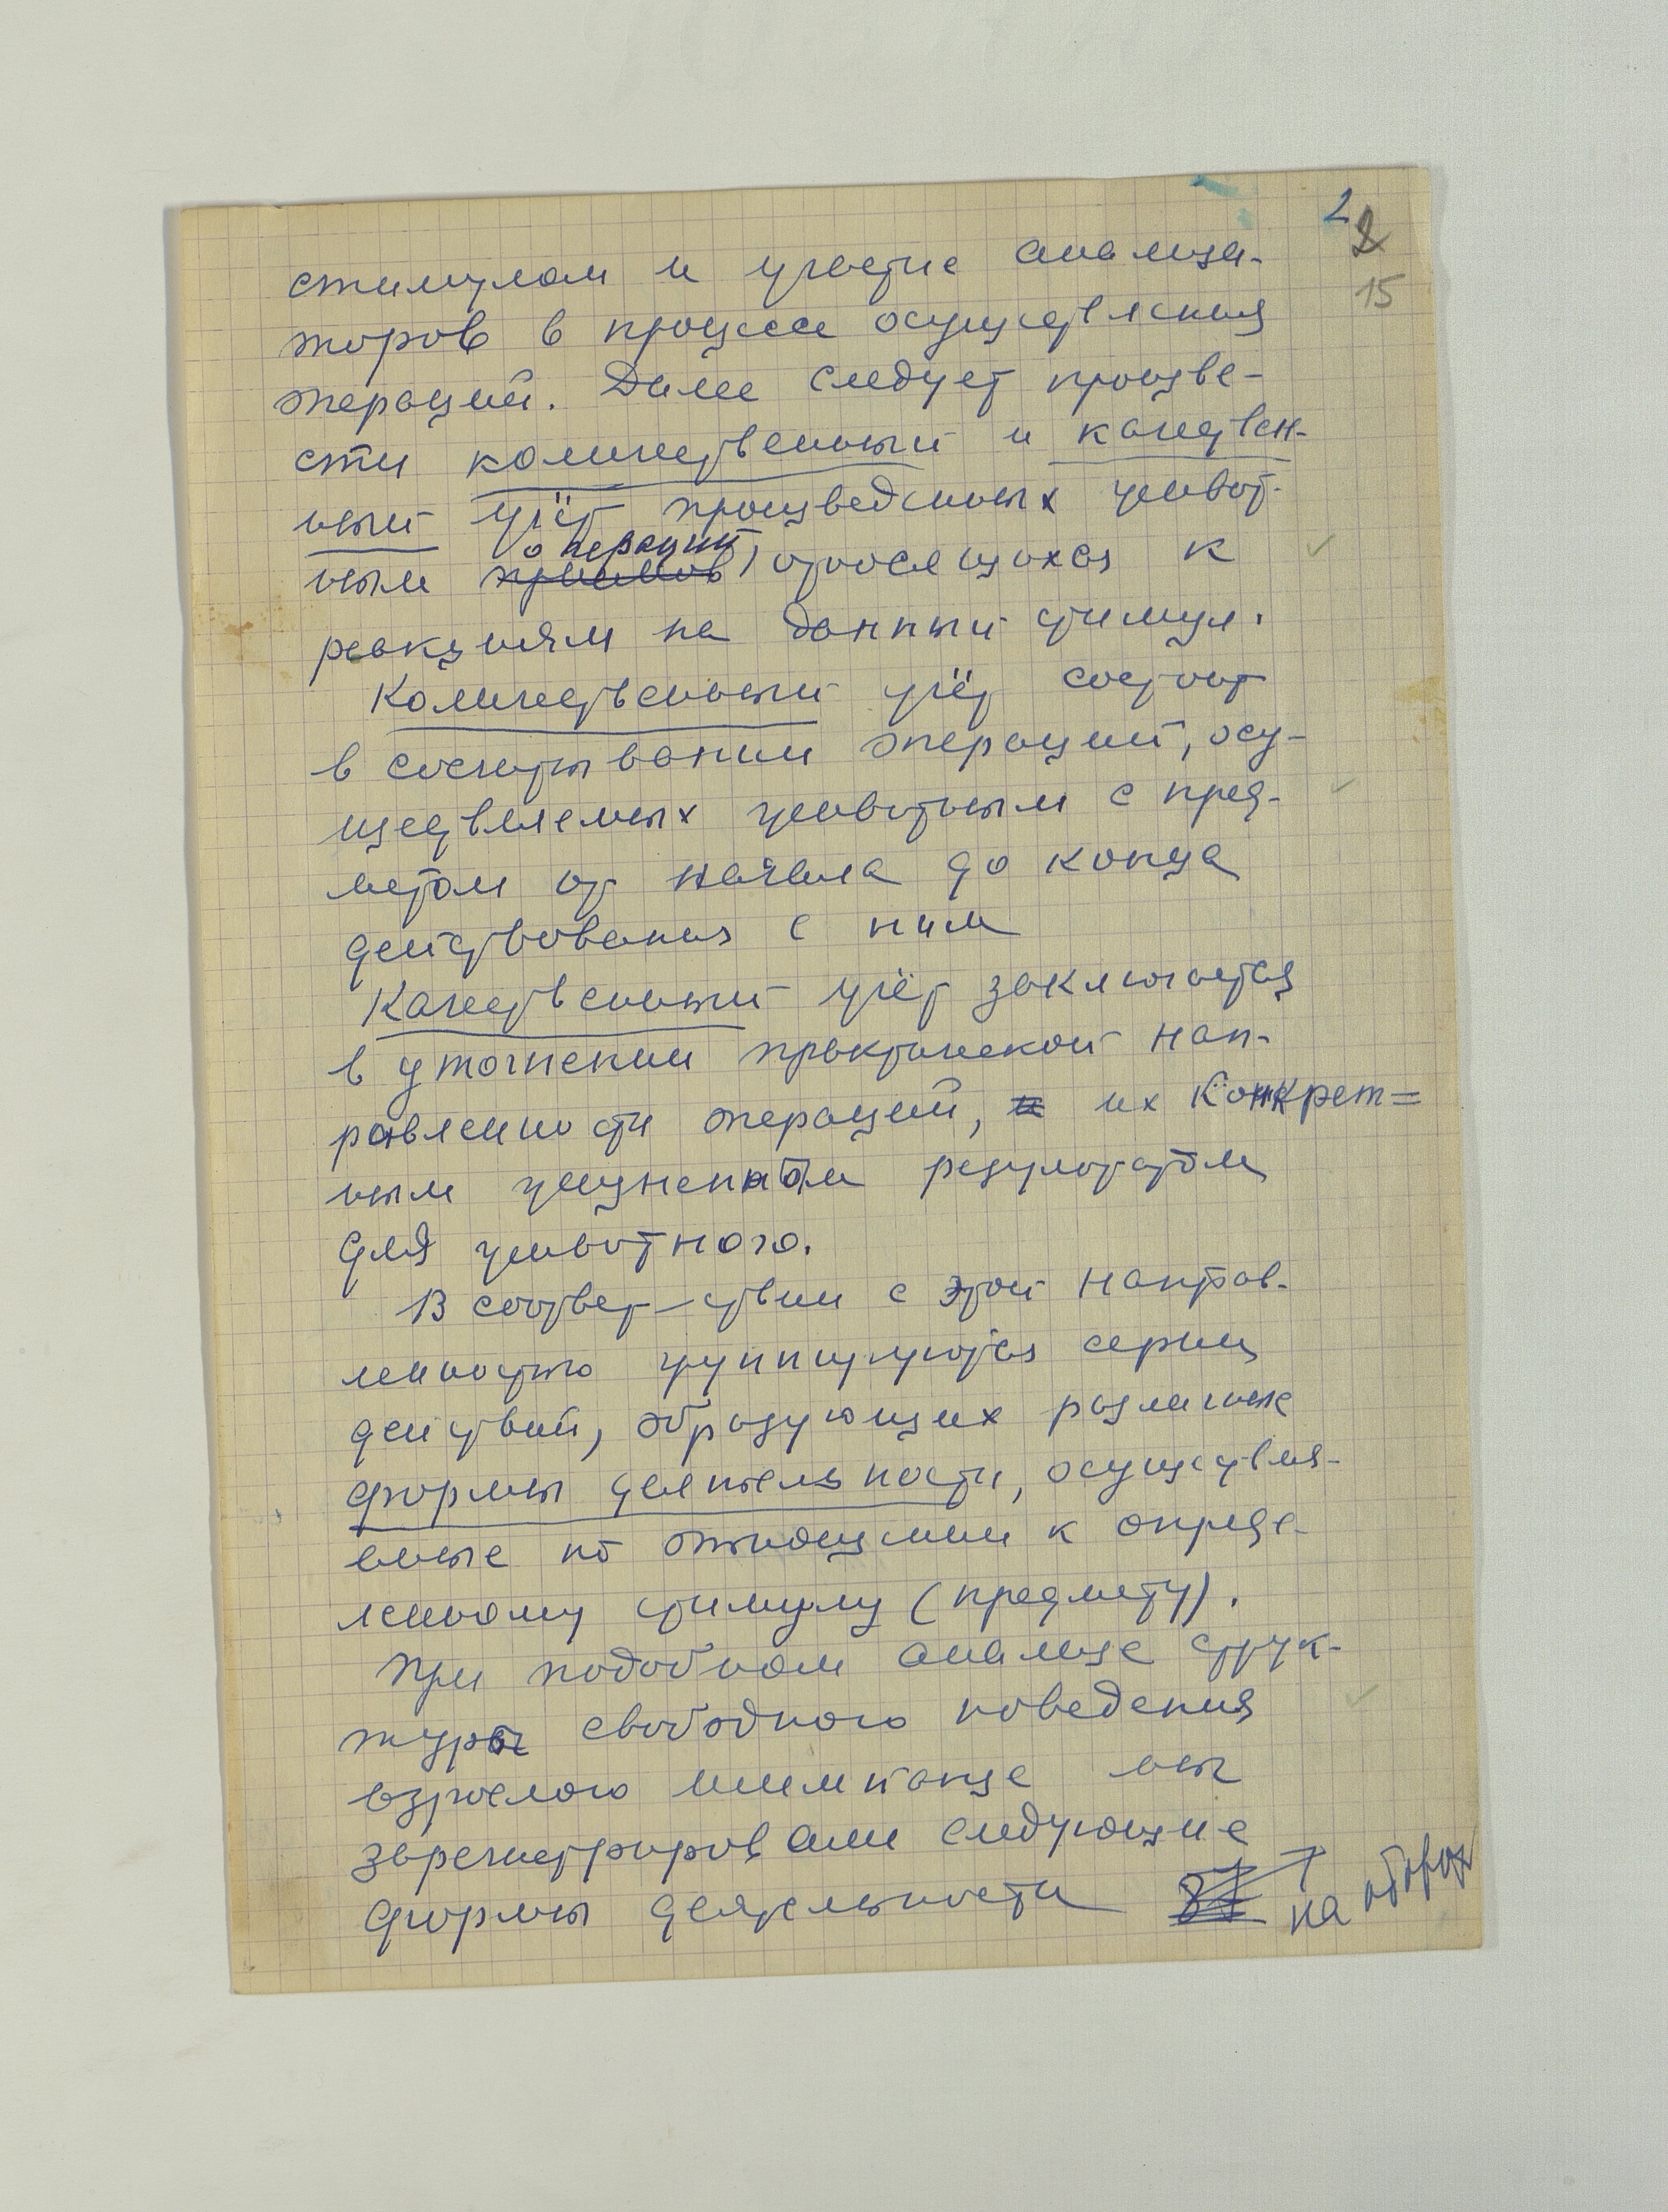 2
2
15
стимулом и участие анализа-
торов в процессе осуществления
операций. Далее следует произве-
сти количественный и качествен-
ный учёт произведенных живот-
операций
ным приемов, относящихся к
реакциям на данный стимул.
Количественный учёт состоит
в сосчитывании операций, осу-
ществляемых животным с пред-
метом от начала до конца
действования с ним
Качественный учёт заключается
в уточнении практической нап-
равленности операций, и их конкрет=
ным жизненным результатом
для животного.
В соответ-ствии с этой направ-
ленностью группируются серии
действий, образующих различные
формы деятельности, осуществля-
емые по отношению к опреде-
ленному стимулу (предмету).
При подобном анализе струк-
туры свободного поведения
взрослого шимпанзе мы
зарегистрировали следующие
формы деятельности
на оборот